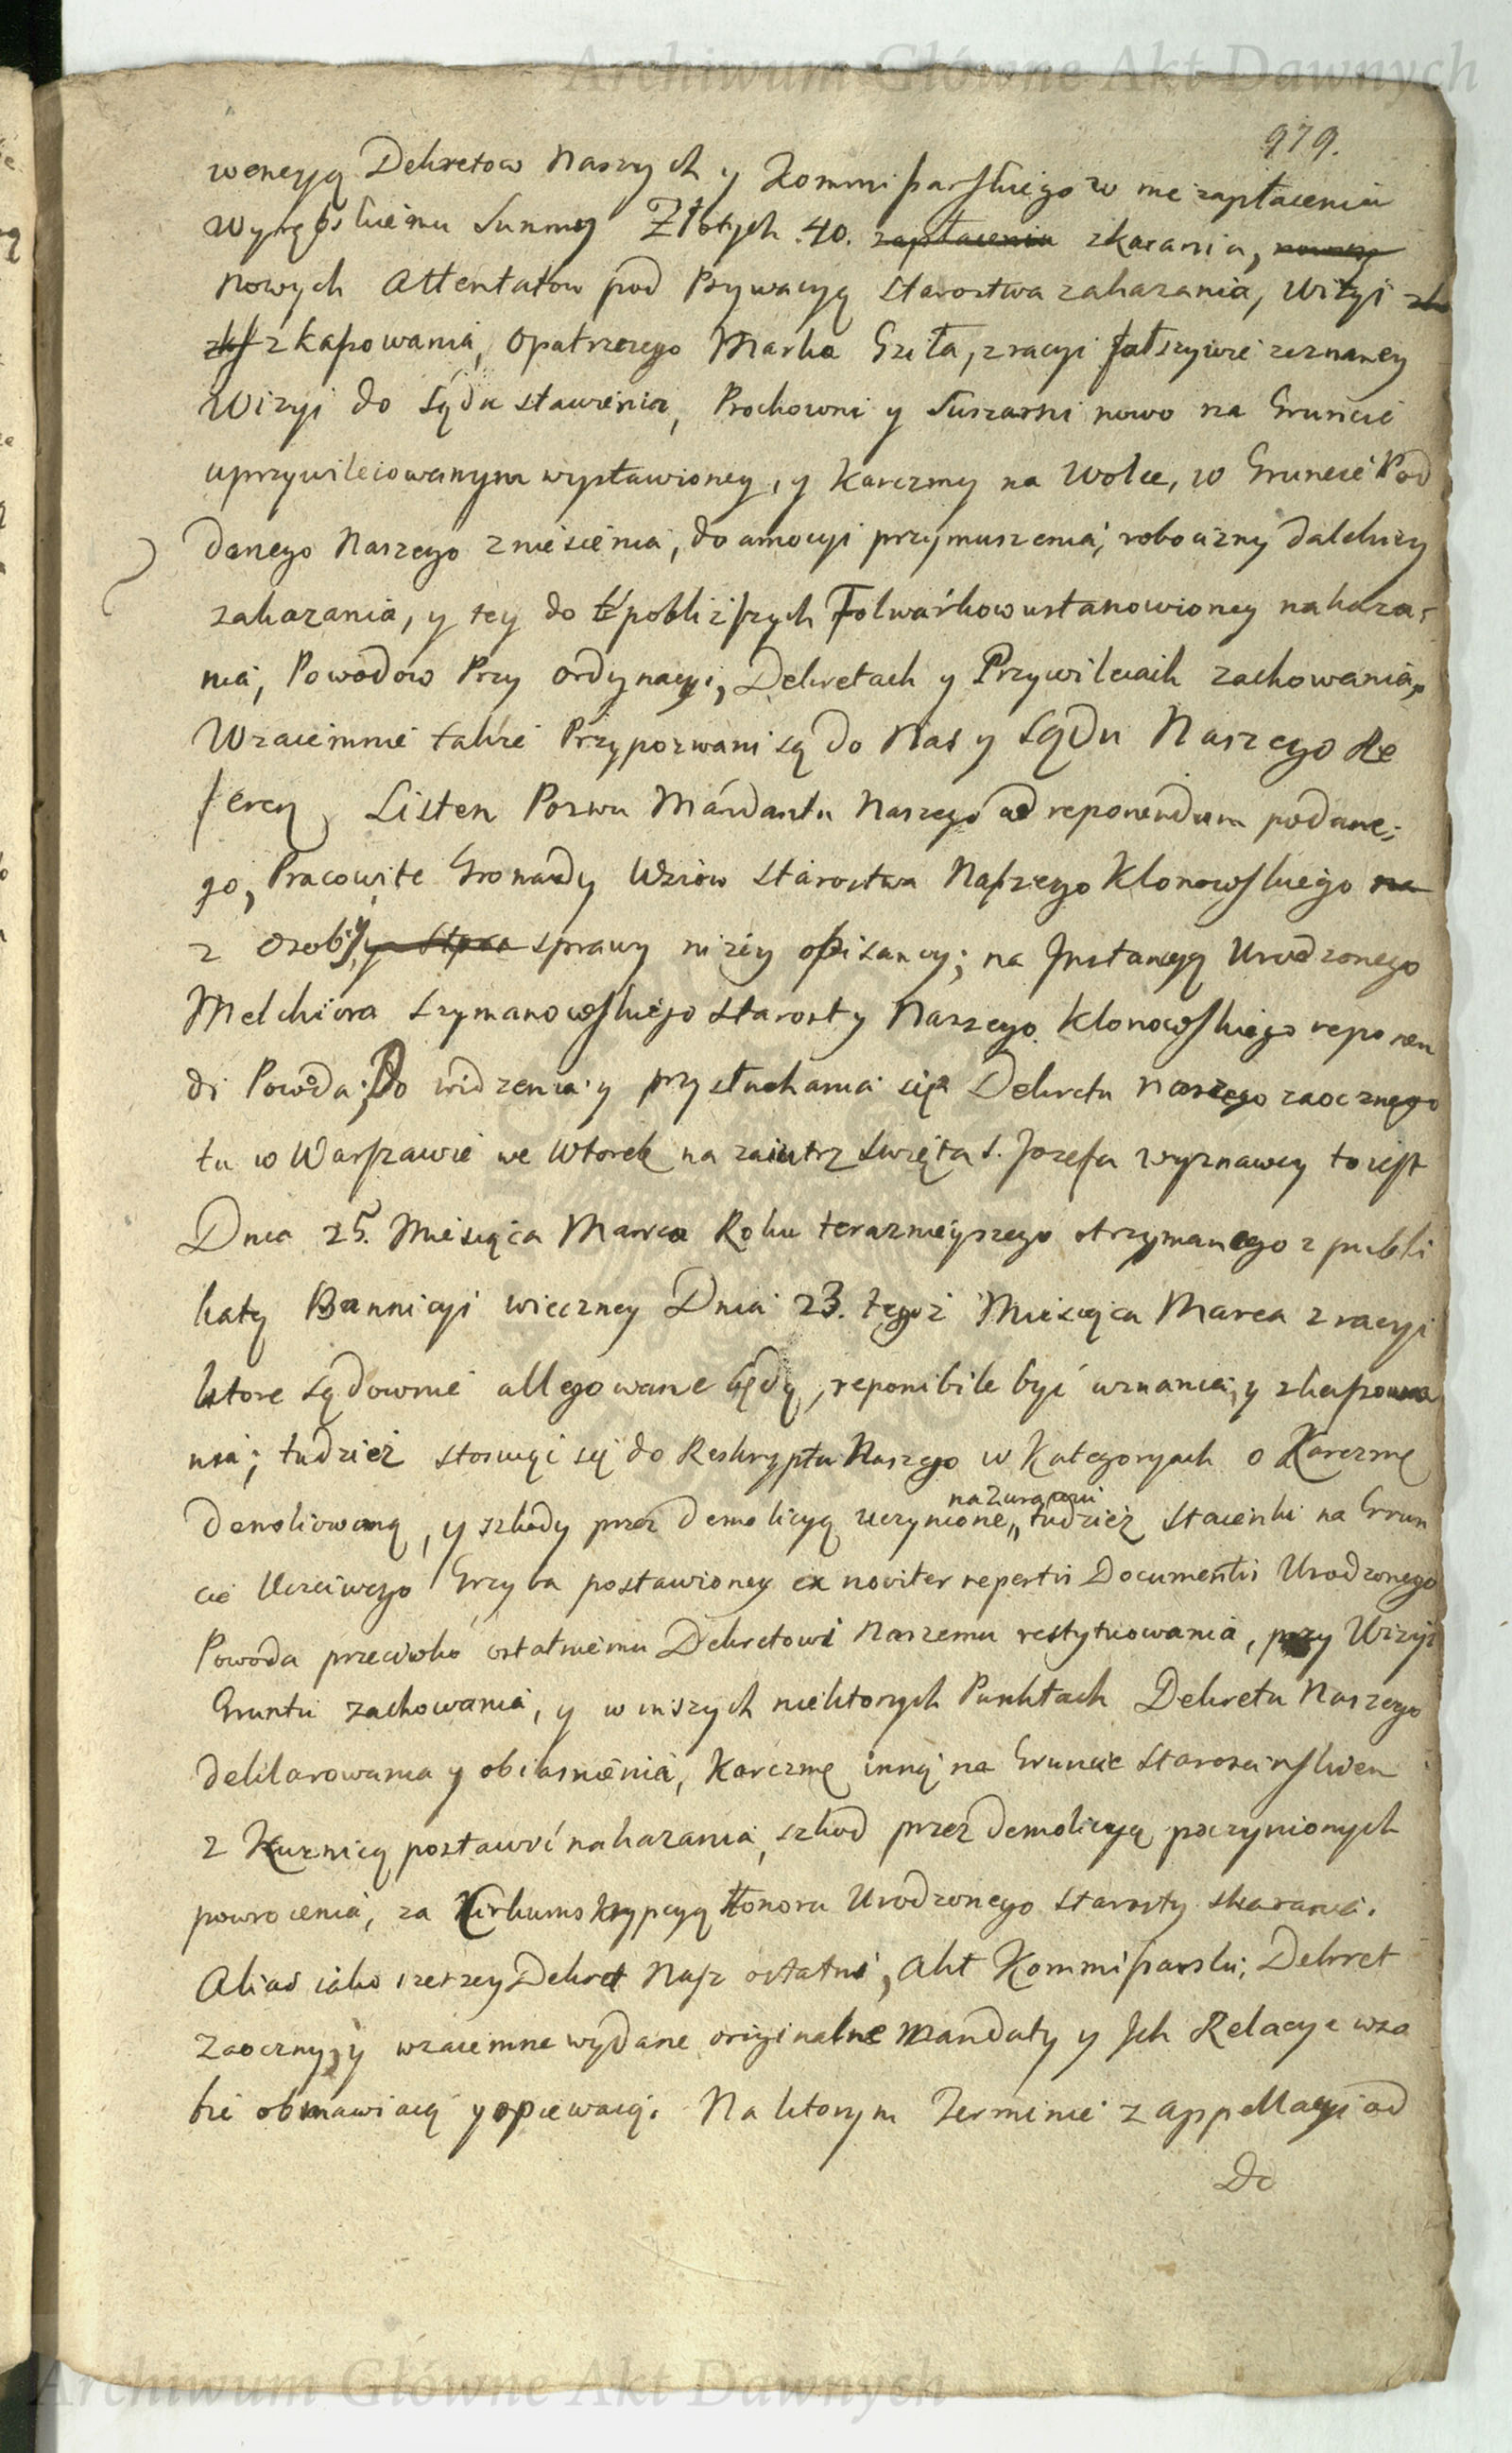 Archiwum Główne Akt Dawnych
979.
wencyą Dekretow Naszych y Kommissarskiego w nie zapłaceniu
Wyrębskiemu Summy Złotych .40. zapłacenia zkarania, nowey
Nowych Attentatow pod Prywacyą Starostwa zakazania, Wizyi
zkassowania, Opatrznego Marka Grzła, z racyi fałszywie zeznaney
Wizyi do Sądu stawienia, Prochowni y Suszarni nowo na Gruncie
uprzywileiowanym wystawioney, y Karczmy na Wolce, w Gruncie Pod
danego Naszego zniesienia, do amocyi przymuszenia, robocizny dalekiey
zakazania, y tey do pobliższych Folwarkow ustanowioney nakaza-
nia, Powodow Przy Ordynacyi, Dekretach y Przywileiach zachowania,
Wzaiemnie takze Przypozwani są do Nas y Sądu Naszego Re
feren Listem Pozwu Mandatu Naszego ad reponendum podane-
go, Pracowite Gromady Wsiow Starostwa Naszego Klonowskiego na
z Osoby, y sprawy niżey opisaney; na Instancyą Urodzonego
Melchiora Szymanowskiego Starosty Naszego Klonowskiego reponen
di Powoda; Do widzenia y przysłuchania się Dekretu naszego zaocznego
tu w Warszawie we Wtorek na zaiutrz Święta S. Jozefa Wyznawcy toiest
Dnia 25. Miesiąca Marca Roku terazniejszego otrzymanego z publi
katy Bannicyi wieczney Dnia 23. tegoż Miesiąca Marca z racyi
ktore sądownie allegowane będą, reponibile być uznania, y zkassowa
nia; tudzież stosuiąc się do Reskryptu Naszego w Kategoryach o Karczmę
demoliowaną, y szkody przez demolicyą uczynione, tudzież Stacienki na Grun
cie Uczciwego Grzyba postawioney ex noviter repertis Documentis Urodzonego
Powoda przeciwko ostatniemu Dekretowi Naszemu restytuowania, przy Wizyi
Gruntu zachowania, y w inszych niektorych Punktach Dekretu Naszego
deklarowania y obiasnienia, Karczmę inną na Gruncie Staroscinskiem
z Kuznicą postawić nakazania, szkod przez demolicyą poczynionych
powrocenia, za Cirkumskrypcyą Honoru Urodzonego Starosty skarania.
Alias iako szerzey Dekret Nasz ostatni, Akt Kommissarski, Dekret
Zaoczny, y wzaiemne wydane originalne Mandaty y Ich Relacye w so
bie obmawiaią y opiewaią. Na ktorym Terminie z appellacyi od
De
Archiwum Główne Akt Dawnych